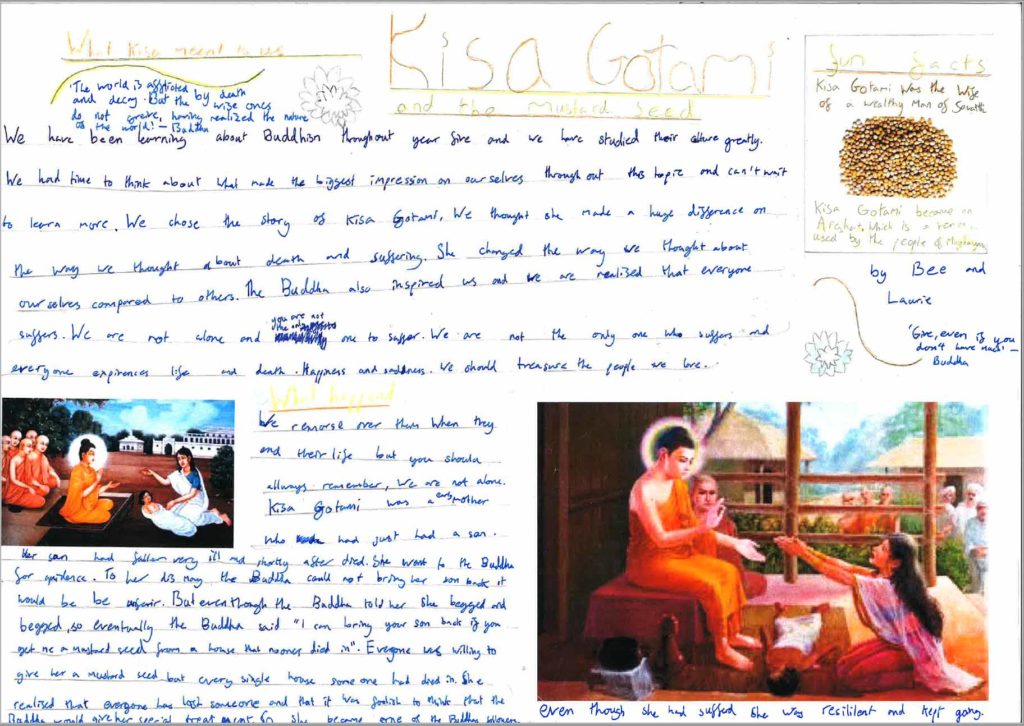 Kisa Gotami
and the Mustard Seed
What Kisa meant to us
'The world is afflicted by death
and decay. But the wise ones
do not greive, having realized the nature
of the world!' – Buddha
We have been learning about Buddhism throughout year five and we have studied their culture greatly.
We had time to think about what made the biggest impression on ourselves throughout this topic and can't wait
to learn more. We chose the story of Kisa Gotami. We thought she made a huge difference on
the way we thought about death and suffering. She changed the way we thought about
ourselves compared to others. The Buddha also inspired us and we are realised that everyone
suffers. We are not alone and you are not the only one to suffer. We are not the only one who suffers and
everyone expirences life and death. Happiness and saddness. We should treasure the people we love.
fun facts
Kisa Gotami was the Wife
of a wealthy Man of Savatti
Kisa Gotami became an
Arashat, which is a
used by the people of
by Bee and
Laurie
'Give, even if you
don't have much' –
Buddha
What happend
We remorse over them when they
end their life but you should
allways remember, we are not alone.
Kisa Gotami was a mother
who had just had a son.
Her son had fallen very ill and shortly after died. She went to the Buddha
for guidence. To her dismay the Buddha could not bring her son back it
would be be unfair. But even though the Buddha told her she begged and
begged, so eventually the Buddha said "I can bring your son back if you
get me a mustard seed from a house that noones died in". Everyone was willing to
give her a mustard seed but every single house someone had died in. She
realised that everyone has lost someone and that it was foolish to think that the
Buddha would give her special treatment. So she became one of the Buddhas followers.
even though she had sufferd she was resilient and kept going.